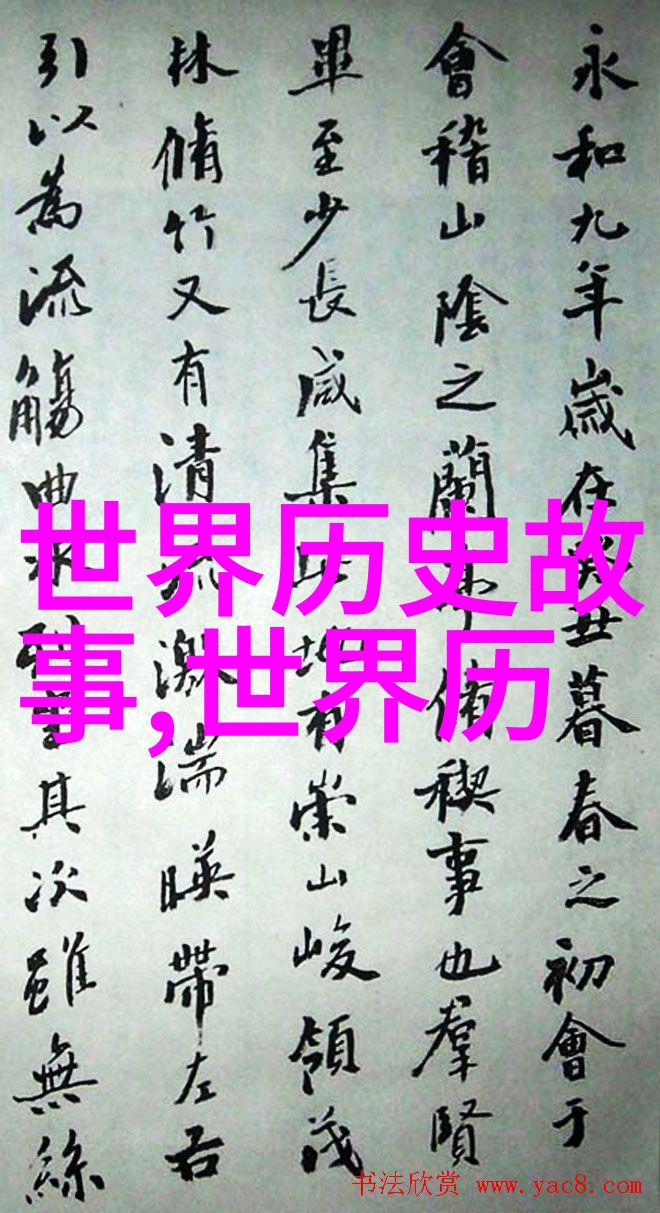 永和九年歲在癸丑暮春之初會于
會稽山陰之蘭亭脩稧事也羣賢
畢至少長咸集此地有崇山峻領茂
林脩竹又有清流激湍暎帶左右
引以為流觴曲水列坐其次雖無絲
世界历史故
事,世界历
书法欣赏 www.yac8.com